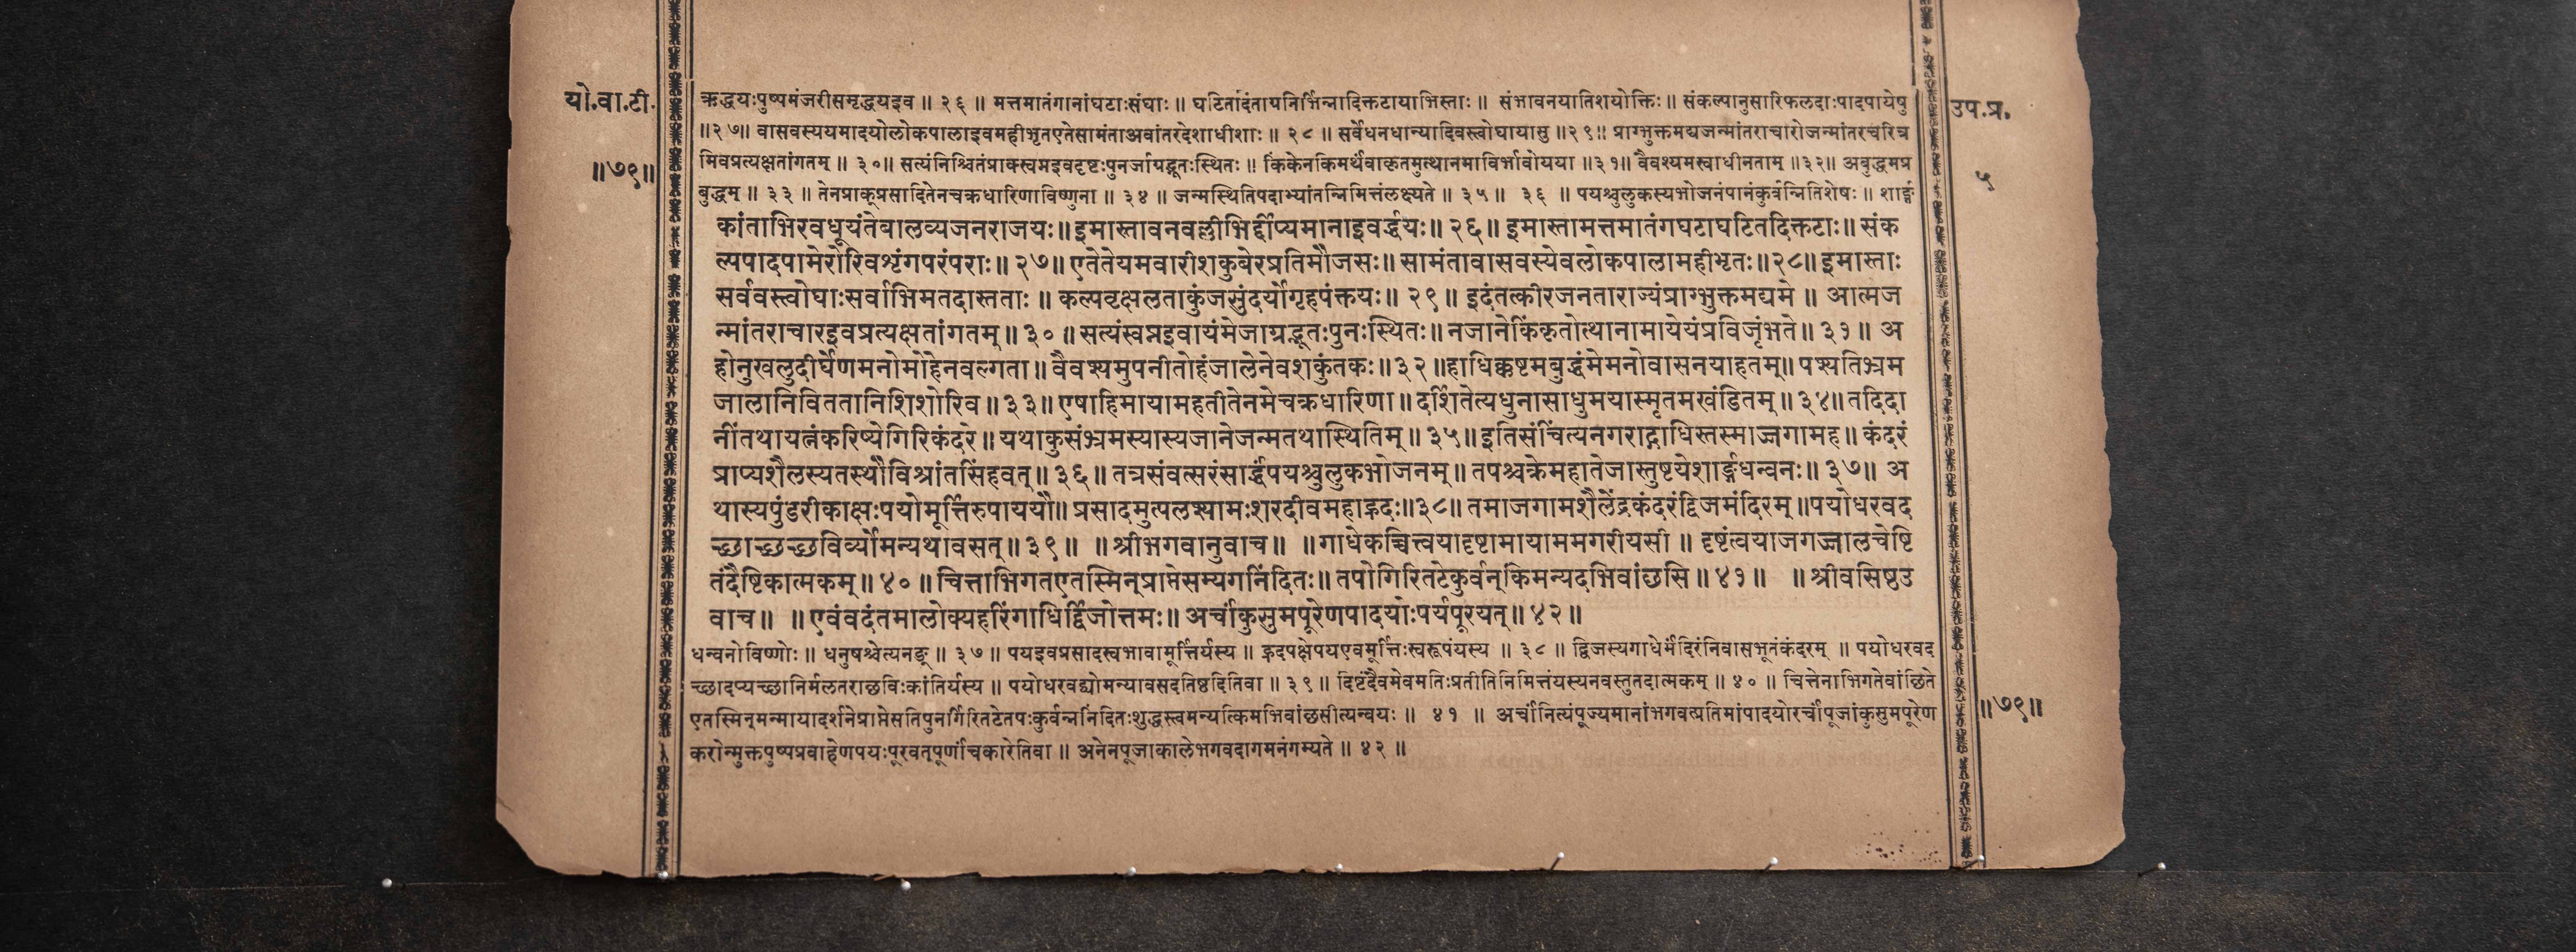 यो.वा.टी.
॥७९॥
उप.प्र.
५
ऋद्धयःपुष्पमंजरीसमृद्धयइव ॥ २६ ॥ मत्तमातंगानांघटाःसंघाः ॥ घटितादंताग्रनिर्भिन्नादिक्तटायाभिस्ताः ॥ संभावनयातिशयोक्तिः ॥ संकल्पानुसारिफलदाःपादपायेषु
॥२७॥ वासवस्ययमादयोलोकपालाइवमहीभृतएतेसामंताअवांतरदेशाधीशाः ॥ २८ ॥ सर्वेधनधान्यादिवस्त्वोघायासु ॥२९॥ प्राग्भुक्तमद्यजन्मांतराचारोजन्मांतरचरित्र
मिवप्रत्यक्षतांगतम् ॥ ३०॥ सत्यंनिश्चितंप्राक्स्वमइवदृष्टःपुनर्जाग्रद्भूतःस्थितः ॥ किंकेनकिमर्थंवाकृतमुत्थानमाविर्भावोयया ॥३१॥ वैवश्यमस्वाधीनताम् ॥३२॥ अबुद्धमप्र
बुद्धम् ॥ ३३ ॥ तेनप्राक्प्रसादितेनचक्रधारिणाविष्णुना ॥ ३४ ॥ जन्मस्थितिपदाभ्यांतन्निमित्तंलक्ष्यते ॥ ३५ ॥ ३६ ॥ पयश्चुलुकस्यभोजनंपानंकुर्वन्नितिशेषः ॥ शार्ङ्ग
कांताभिरवधूयंतेवालव्यजनराजयः॥इमास्तावनवल्लीभिर्दीप्यमानाइवर्द्धयः॥ २६॥ इमास्तामत्तमातंगघटाघटितदिक्तटाः॥ संक
ल्पपादपामेरोरिवशृंगपरंपराः॥ २७॥ एतेतेयमवारीशकुबेरप्रतिमौजसः॥ सामंतावासवस्येवलोकपालामहीभृतः॥२८॥ इमास्ताः
सर्ववस्त्वोघाःसर्वाभिमतदास्तताः ॥ कल्पवृक्षलताकुंजसुंदर्योगृहपंक्तयः॥ २९॥ इदंतत्कीरजनताराज्यंप्राग्भुक्तमद्यमे ॥ आत्मज
न्मांतराचारइवप्रत्यक्षतांगतम्॥ ३०॥ सत्यंस्वप्नइवायंमेजाग्रद्भूतःपुनःस्थितः॥ नजानेकिंकृतोत्थानामायेयंप्रविजृंभते॥ ३१॥ अ
होनुखलुदीर्घेणमनोमोहेनवल्गता॥ वैवश्यमुपनीतोहंजालेनेवशकुंतकः॥३२॥हाधिक्कष्टमबुद्धंमेमनोवासनयाहतम्॥ पश्यतिभ्रम
जालानिविततानिशिशोरिव॥ ३३॥ एषाहिमायामहतीतेनमेचक्रधारिणा॥ दर्शितेत्यधुनासाधुमयास्मृतमखंडितम्॥ ३४॥ तदिदा
नींतथायत्नंकरिष्येगिरिकंदरे॥ यथाकुसंभ्रमस्यास्यजानेजन्मतथास्थितिम्॥ ३५॥ इतिसंचिंत्यनगराद्गाधिस्तस्माज्जगामह॥ कंदरं
प्राप्यशैलस्यतस्थौविश्रांतसिंहवत्॥ ३६॥ तत्रसंवत्सरंसार्द्धंपयश्चुलुकभोजनम्॥ तपश्चक्रेमहातेजास्तुष्टयेशार्ङ्गधन्वनः॥ ३७॥ अ
थास्यपुंडरीकाक्षःपयोमूर्त्तिरुपाययौ॥ प्रसादमुत्पलश्यामःशरदीवमहाह्रदः॥३८॥ तमाजगामशैलेंद्रकंदरंद्विजमंदिरम्॥पयोधरवद
च्छाच्छच्छविर्व्योमन्यथावसत्॥ ३९॥ ॥श्रीभगवानुवाच॥ ॥गाधेकच्चित्त्वयादृष्टामायाममगरीयसी ॥ दृष्टंत्वयाजगज्जालचेष्टि
तंदैष्टिकात्मकम्॥ ४०॥ चित्ताभिगतएतस्मिन्प्राप्तेसम्यगनिंदितः॥ तपोगिरितटेकुर्वन्किमन्यदभिवांछसि॥ ४१॥ ॥ श्रीवसिष्ठउ
वाच॥ ॥ एवंवदंतमालोक्यहरिंगाधिर्द्विजोत्तमः॥ अर्चांकुसुमपूरेणपादयोःपर्यपूरयत्॥ ४२॥
धन्वनोविष्णोः ॥ धनुषश्चेत्यनङ् ॥ ३७ ॥ पयइवप्रसादस्वभावामूर्त्तिर्यस्य ॥ ह्रदपक्षेपयएवमूर्त्तिःस्वरूपंयस्य ॥ ३८ ॥ द्विजस्यगाधेर्मंदिरंनिवासभूतंकंदरम् ॥ पयोधरवद
च्छादप्यच्छानिर्मलतराछविःकांतिर्यस्य ॥ पयोधरवद्व्योमन्यावसदतिष्ठदितिवा ॥ ३९ ॥ दिष्टंदैवमेवमतिःप्रतीतिनिमित्तंयस्यनवस्तुतदात्मकम् ॥ ४० ॥ चित्तेनाभिगतेवांछिते
एतस्मिन्मन्मायादर्शनेप्राप्तेसतिपुनर्गिरितटेतपःकुर्वन्ननिंदितःशुद्धस्त्वमन्यत्किमभिवांछसीत्यन्वयः ॥ ४१ ॥ अर्चांनित्यंपूज्यमानांभगवत्प्रतिमांपादयोरर्चांपूजांकुसुमपूरेण
करोन्मुक्तपुष्पप्रवाहेणपयःपूरवत्पूर्णांचकारेतिवा ॥ अनेनपूजाकालेभगवदागमनंगम्यते ॥ ४२ ॥
॥७९॥